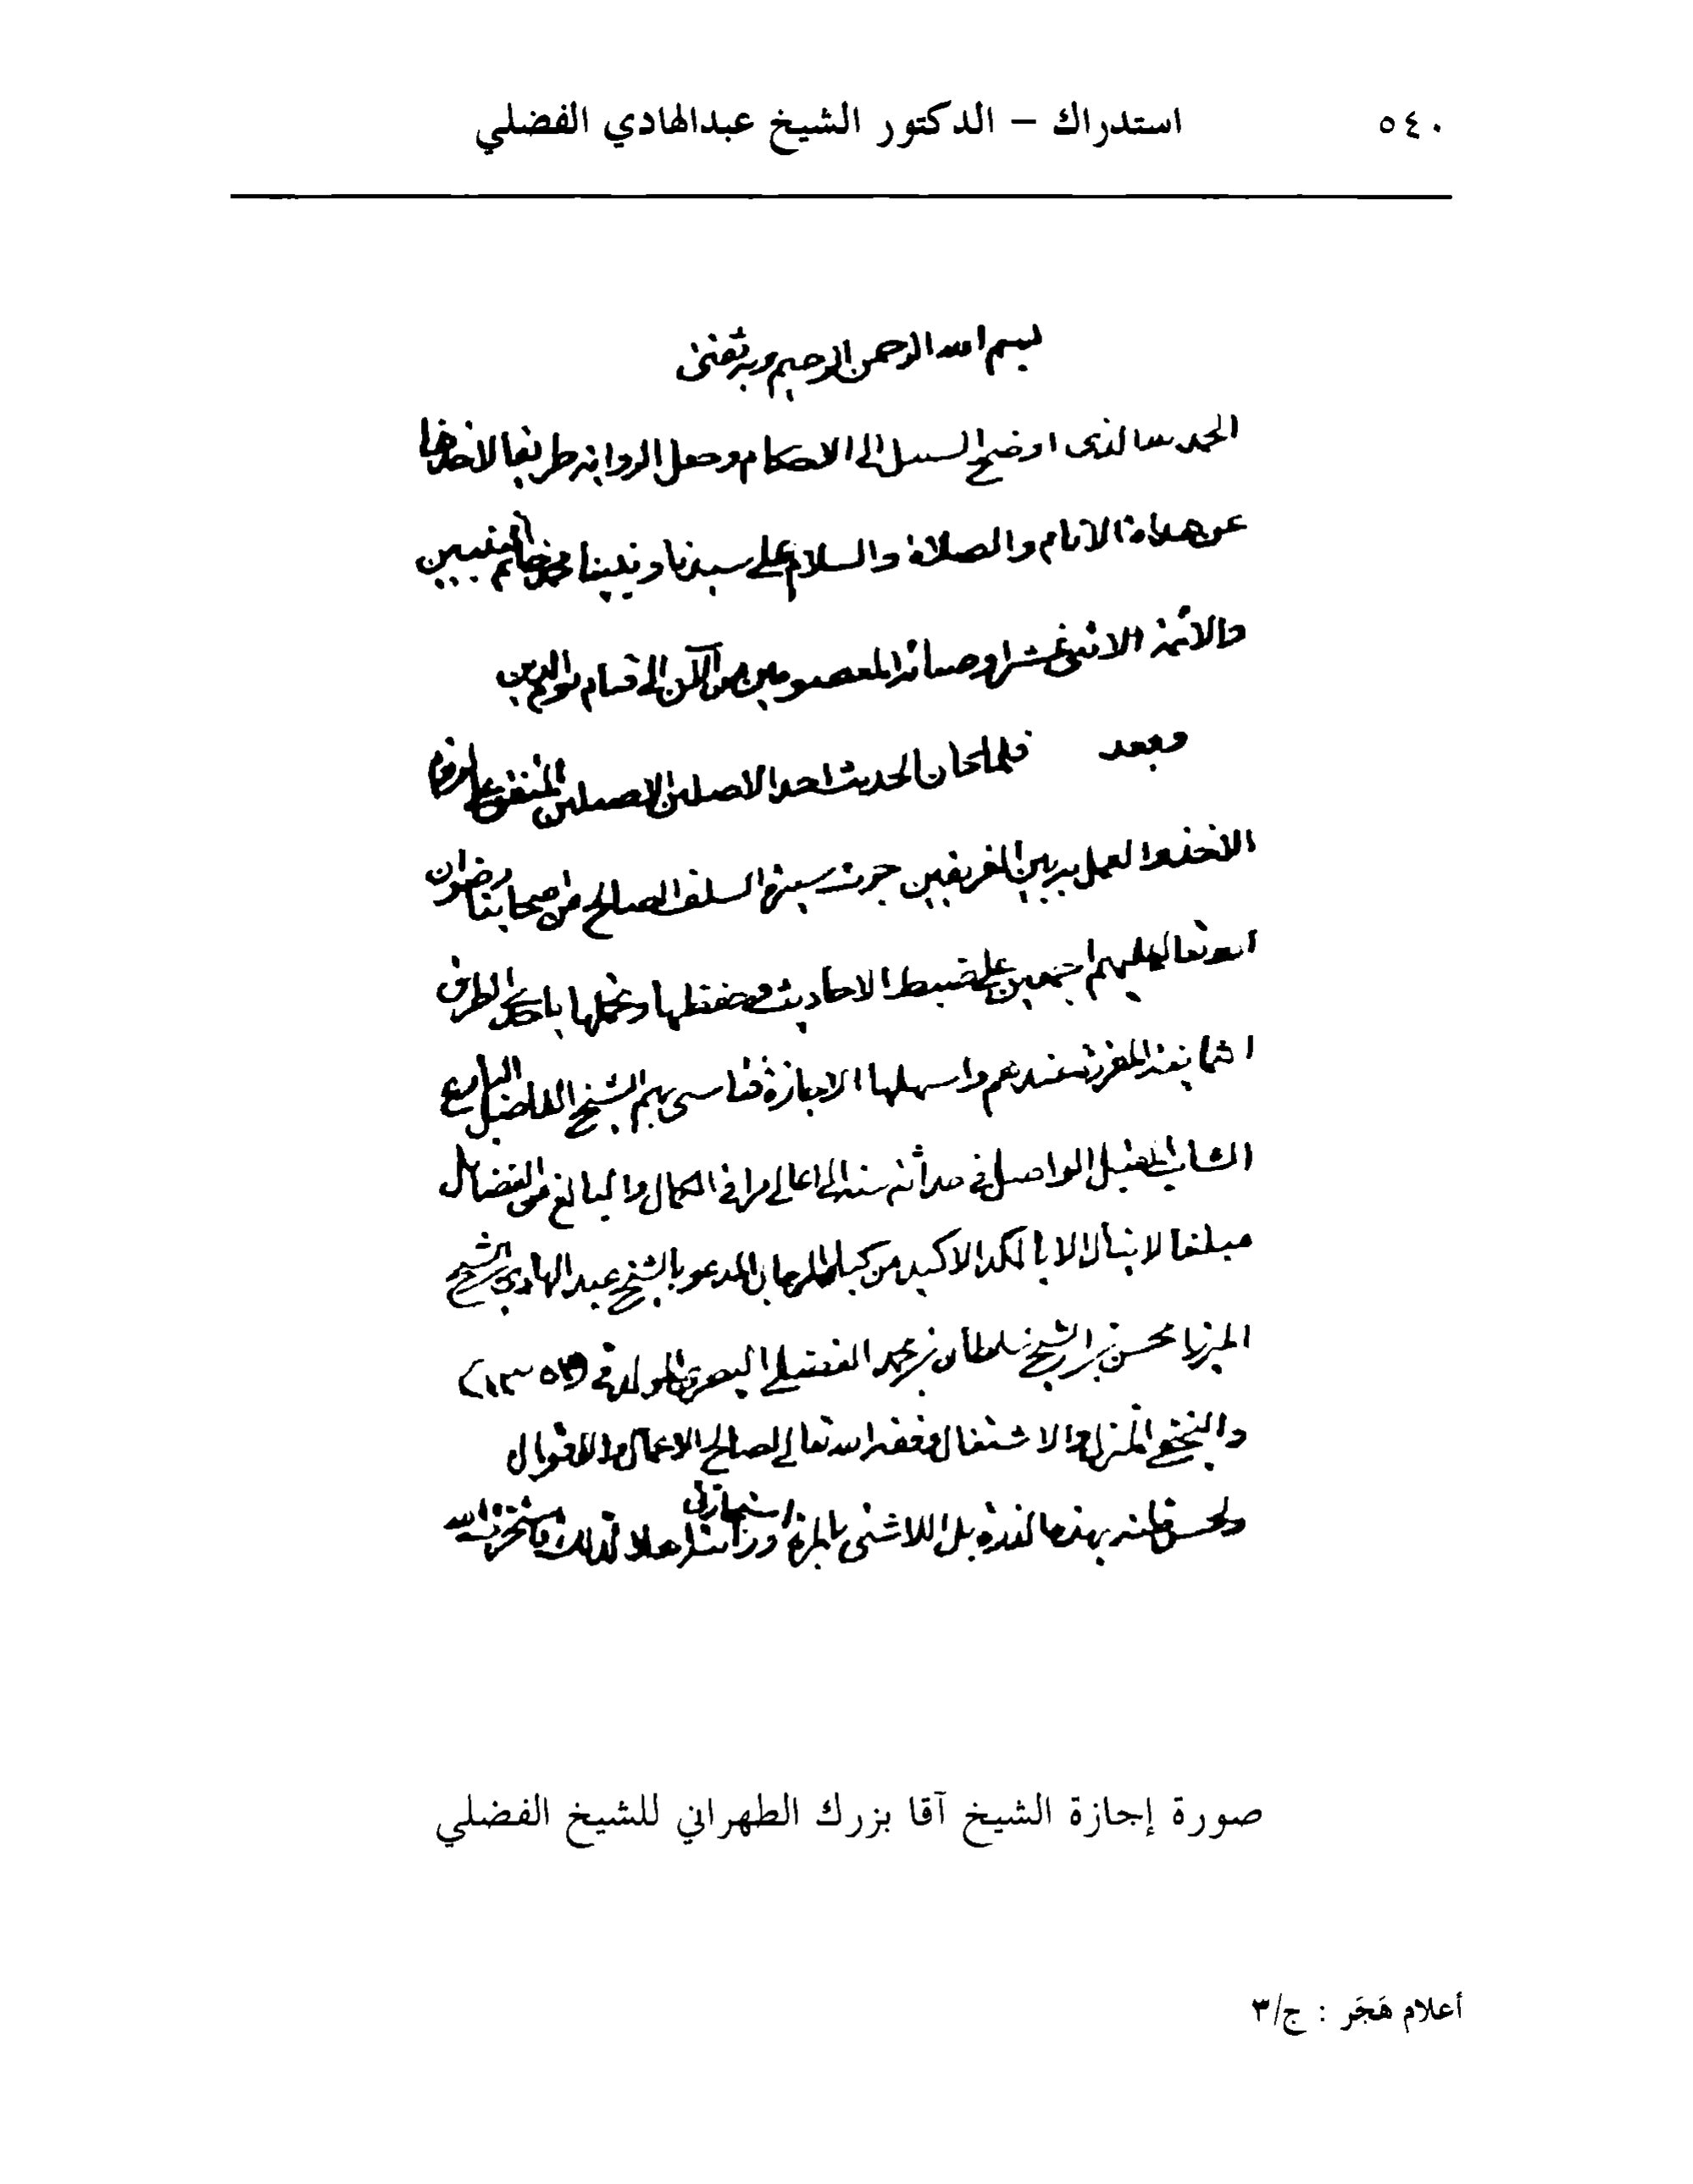 ٥٤٠ استدراك – الدكتور الشيخ عبدالهادي الفضلي
بسم الله الرحمن الرحيم وبه ثقتي
الحمد لله الذي اوضح السبيل الى الاحكام وجعل الرواية طريقا لاخذها
عن هداة الانام والصلاة والسلام على سيدنا ونبينا محمد خاتم النبيين
والائمة الاثنى عشر اوصيائه المعصومين من الآن الى قيام يوم الدين
وبعد فلما كان الحديث احد الاصلين الاصيلين المتفق على لزوم
الاخذ والعمل به بين الفريقين جرت سيرة السلف الصالح من اصحابنا رضوان
الله تعالى عليهم اجمعين على ضبط الاحاديث وحفظها وتحملها باحدى الطرق
الثمانية المقررة عندهم واسهلها الاجازة فتاسى بهم الشيخ الفاضل البارع
الشاب المقبل الواصل في حداثة سنه الى اعالي مراقي الكمال والبالغ من الفضائل
مبلغا لا ينال الا بالكد الاكيد من كبار الرجال المدعو بالشيخ عبد الهادي بن الشيخ
الميرزا محسن بن الشيخ سلطان بن محمد الفضلي البصري المولد في
والنجفي المنزل والاشتغال وفقه الله تعالى لصالح الاعمال والاقوال
ولحسن ظنه بهذه الذرة بل اللاشئ بالمرة استجازني ورآنى اهلا لذلك فاستخرت الله
صورة إجازة الشيخ آقا بزرك الطهراني للشيخ الفضلي
أعلام هَجَر : ج/٣